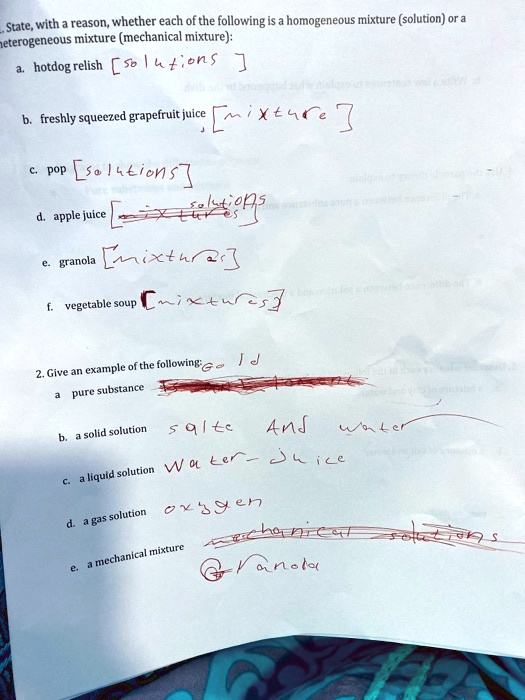 . State, with a reason, whether each of the following is a homogeneous mixture (solution) or a
heterogeneous mixture (mechanical mixture):
a. hotdog relish [solutions]
b. freshly squeezed grapefruit juice [mixture]
c. pop [solutions]
d. apple juice [mixtures solutions]
e. granola [mixtures]
f. vegetable soup [mixtures]
2. Give an example of the following: Gold
a pure substance
b. a solid solution salte And water
c. a liquid solution Water-Juice
d. a gas solution oxygen
mechanical solutions
e. a mechanical mixture Granola